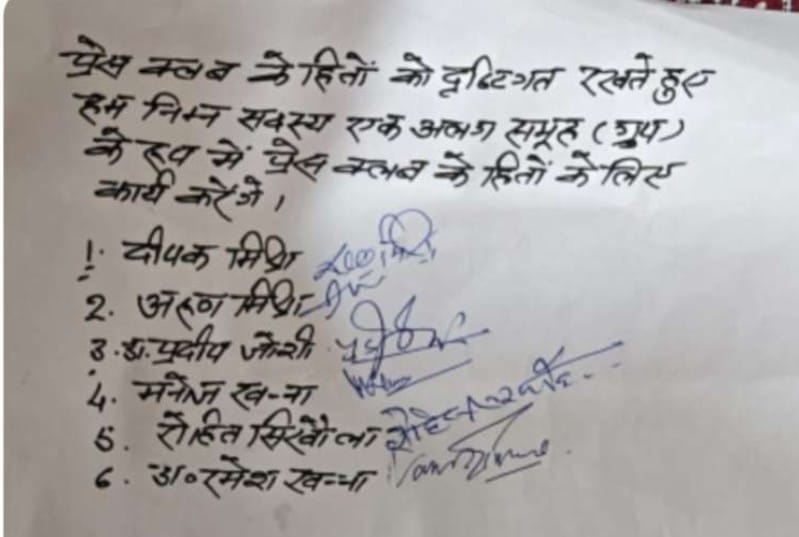 प्रेस क्लब के हितों को दृष्टिगत रखते हुए
हम निम्न सदस्य एक अलग समूह (ग्रुप)
के रूप में प्रेस क्लब के हितों के लिए
कार्य करेंगे।
1. दीपक मिश्रा
2. अरुण मिश्रा
3. डा. प्रदीप जोशी
4. मनोज खन्ना
5. रोहित सिखौला
6. डा॰ रमेश खन्ना